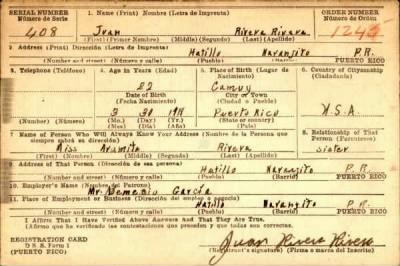 SERIAL NUMBER 1. Name (Print) Nombre (Letra de Imprenta) ORDER NUMBER
Número de Serie Número de Orden
408 Juan Rivera Rivera
(First) (Primer Nombre) (Middle) (Segundo) (Last) (Apellido)
2 Address (Print) Dirección (Letra de Imprenta)
Hatillo Naranjito P.R.
(Number) (Número) (Barrio) PUERTO RICO
3. Telephone (Teléfono) 4. Age in Years (Edad) 5. Place of Birth (Lugar de Nacimiento) 6. Country of Citizenship (Ciudadanía)
22 Camuy
Date of Birth City or Town
(Fecha Nacimiento) (Ciudad o Pueblo)
3 30 Puerto Rico U.S.A.
(Number) (Número) (Mo.) (Day) (Yr.) (State or country)
(Mes) (Día) (Año)
7 Name of Person Who Will Always Know Your Address (Nombre de la Persona que siempre sabrá su dirección) 8. Relationship of That Person (Parentesco)
Miss Rivera sister
(First) (Nombre) (Middle) (Segundo) (Last) (Apellido)
9. Address of That Person (Dirección de esa persona)
Hatillo Naranjito P.R.
(Number) (Número) (Barrio) PUERTO RICO
10. Employer's Name (Nombre del Patrono)
Mr. Demecio García
11. Place of Employment or Business (Dirección del empleo o negocio)
Hatillo Naranjito P.R.
(Number) (Número) (Barrio) PUERTO RICO
I Affirm That I Have Verified Above Answers And That They Are True.
(Afirmo que he verificado las contestaciones que preceden y que todas son correctas.)
REGISTRATION CARD
D S S. Form 1
(PUERTO RICO)
Juan Rivera Rivera
(Registrant's signature) (Firma o marca del Inscrito)